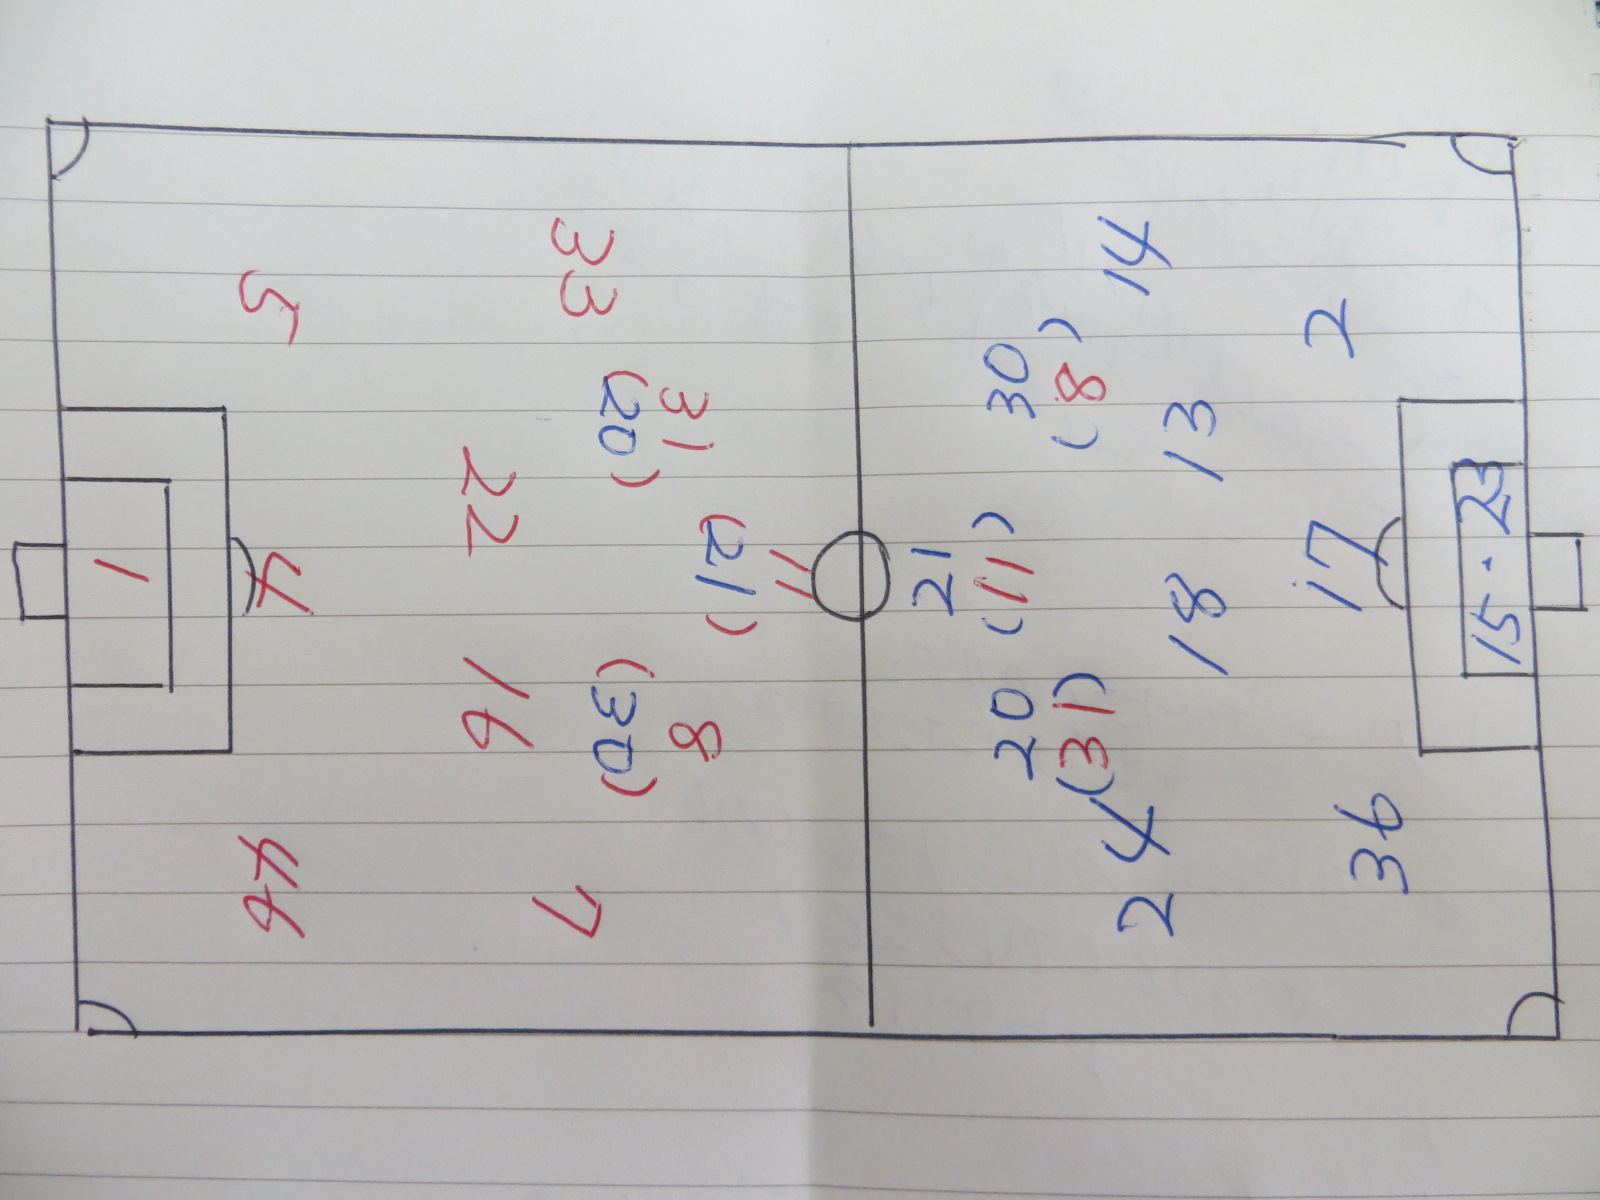 1
5
4
46
22
16
33
7
31
(20)
8
(30)
(21)
11
21
(11)
30
(8)
20
(31)
14
24
13
18
2
17
36
15・23